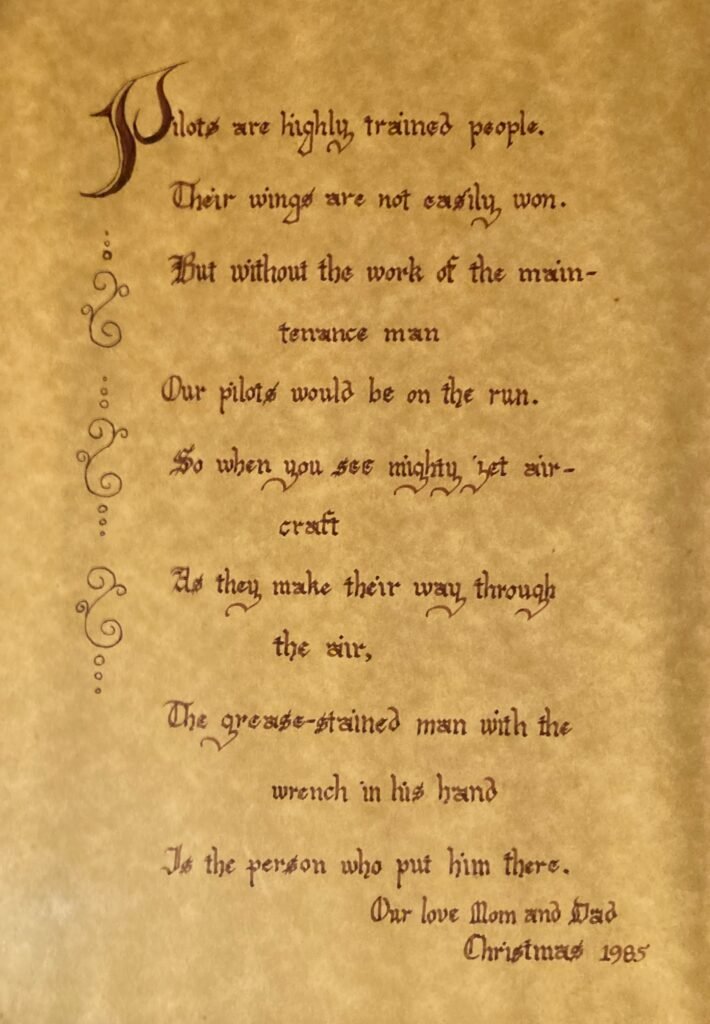 Pilots are highly trained people.
Their wings are not easily won.
But without the work of the main-
tenance man
Our pilots would be on the run.
So when you see mighty jet air-
craft
As they make their way through
the air,
The grease-stained man with the
wrench in his hand
Is the person who put him there.
Our love Mom and Dad
Christmas 1985